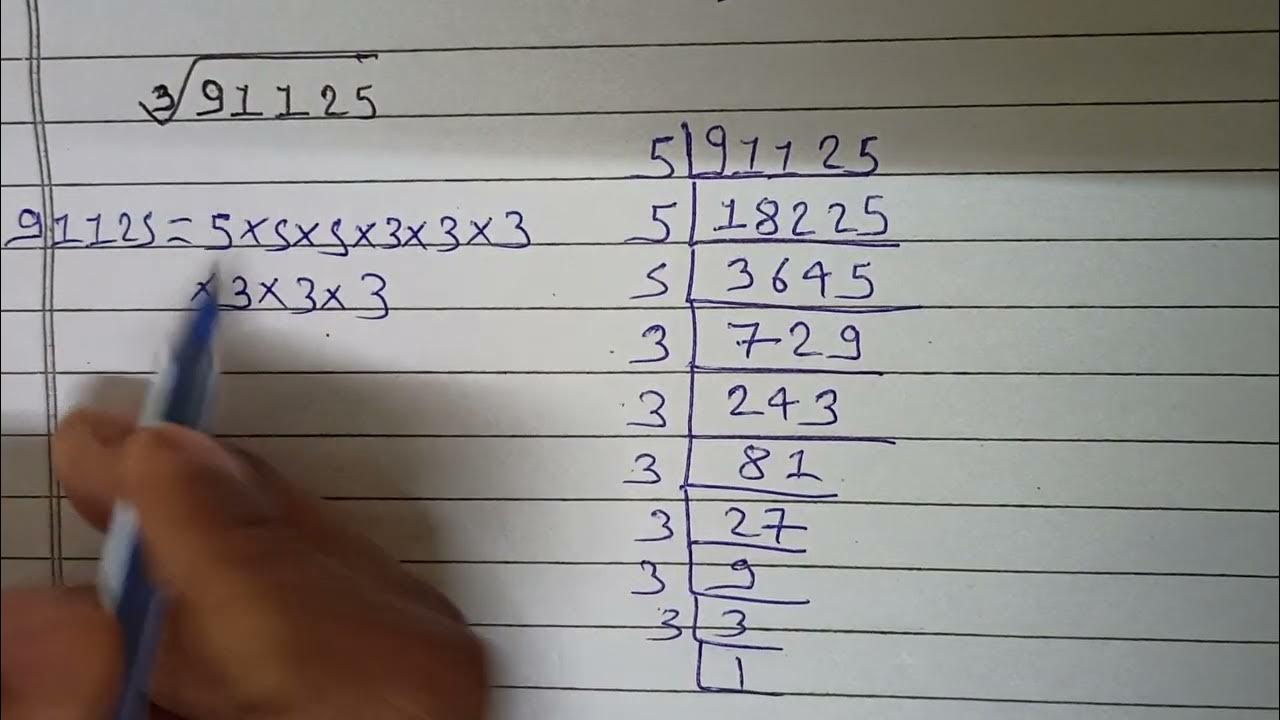 ∛91125
91125=5×5×5×3×3×3
×3×3×3
5|91125
5|18225
5|3645
3|729
3|243
3|81
3|27
3|9
3|3
|1